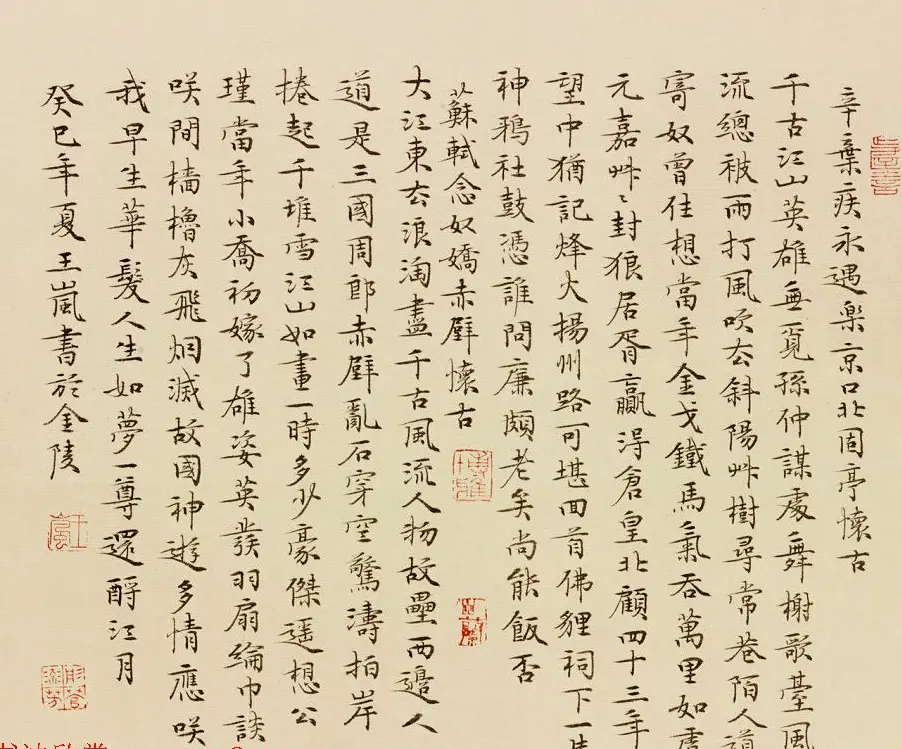 辛棄疾永遇樂京口北固亭懷古
千古江山英雄無覓孫仲謀處舞榭歌臺風
流總被雨打風吹去斜陽艸樹尋常巷陌人道
寄奴曾住想當年金戈鐵馬氣吞萬里如虎
元嘉艸〻封狼居胥贏得倉皇北顧四十三年
望中猶記烽火揚州路可堪回首佛貍祠下一片
神鴉社鼓憑誰問廉頗老矣尚能飯否
蘇軾念奴嬌赤壁懷古
大江東去浪淘盡千古風流人物故壘西邊人
道是三國周郎赤壁亂石穿空驚濤拍岸
捲起千堆雪江山如畫一時多少豪傑遥想公
瑾當年小喬初嫁了雄姿英發羽扇綸巾談
咲間檣櫓灰飛烟滅故國神遊多情應咲
我早生華髮人生如夢一尊還酹江月
癸巳年夏王嵐書於金陵
王嵐